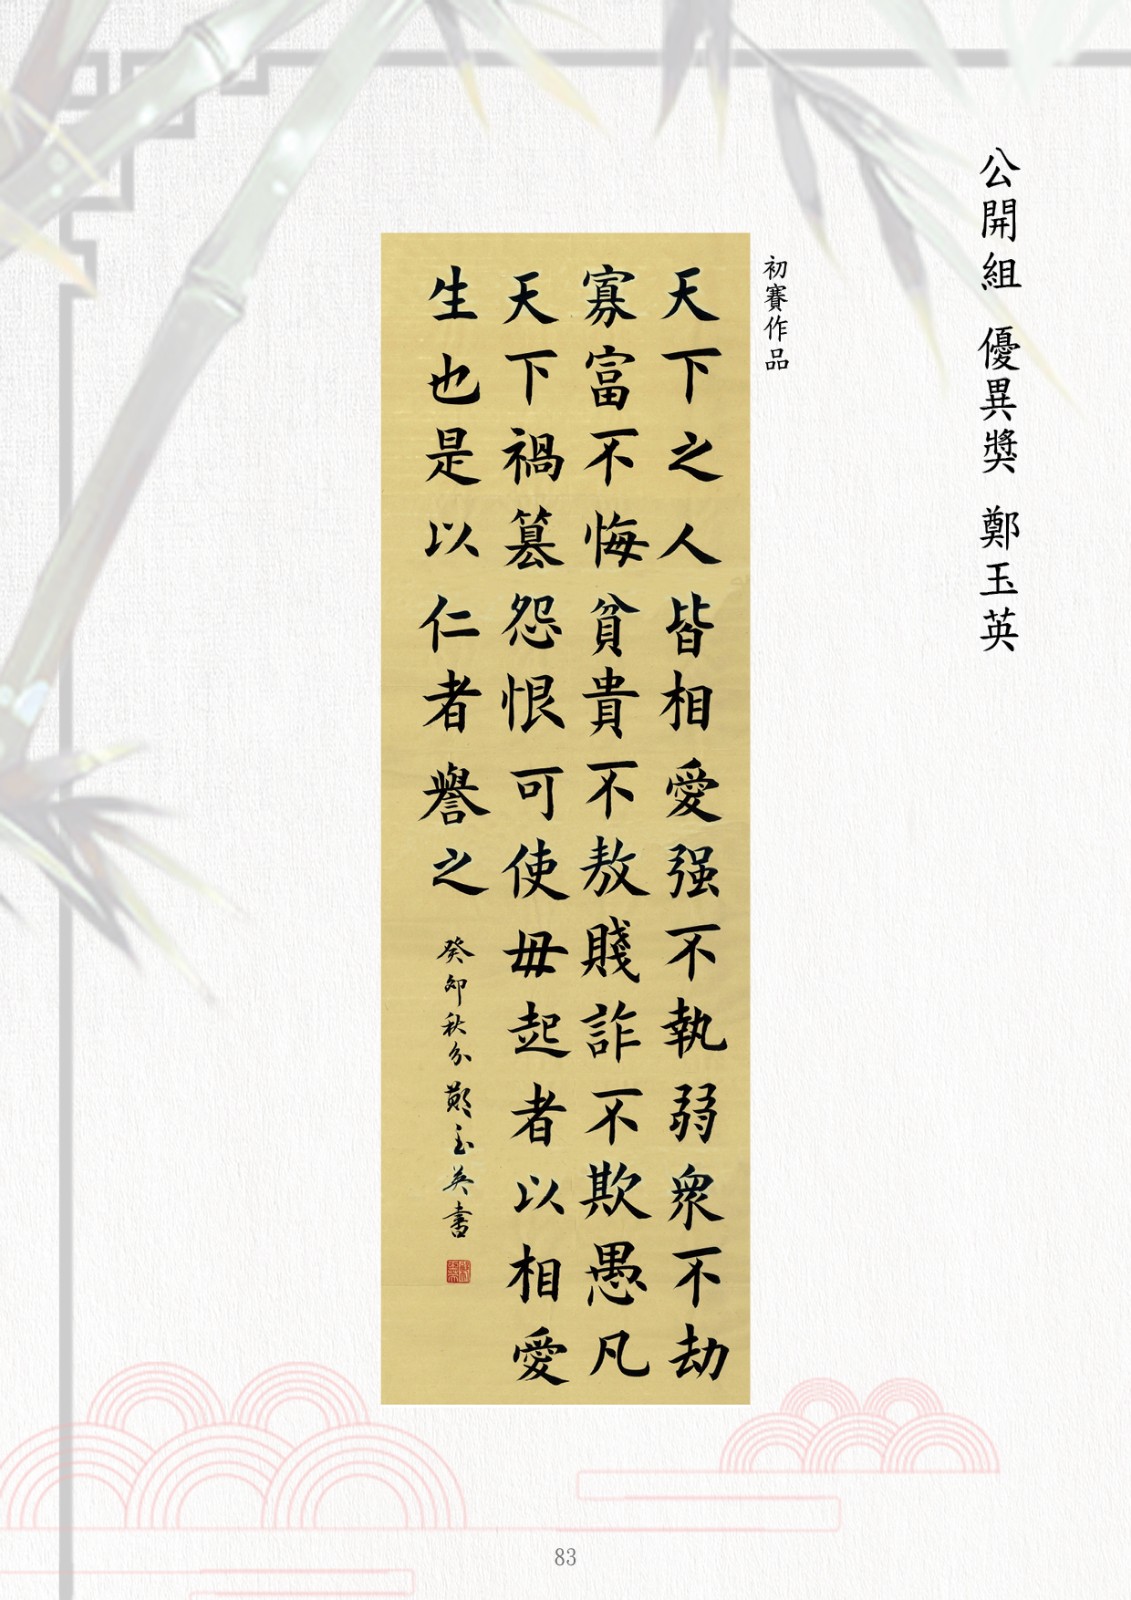 公開組 優異獎 鄭玉英
初賽作品
天下之人皆相愛强不執弱衆不劫
寡富不悔貧貴不敖賤詐不欺愚凡
天下禍篡怨恨可使毋起者以相愛
生也是以仁者譽之
癸卯秋分鄭玉英書
83